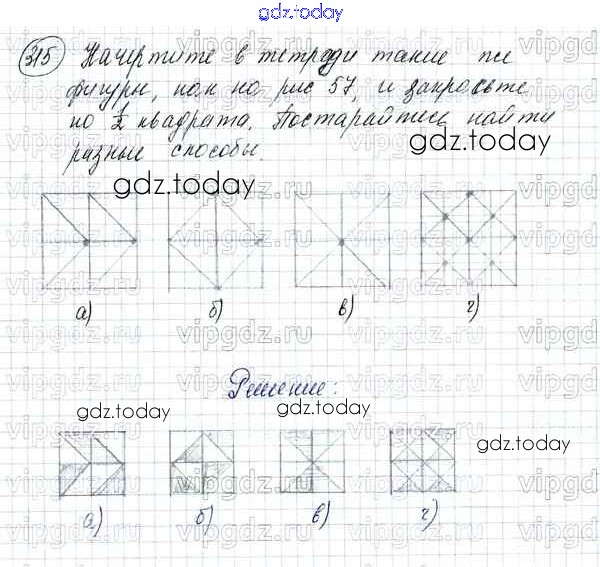 gdz.today
315 Начертите в тетради такие же
фигуры, как на рис 57, и закрасьте
по 1/2 квадрата. Постарайтесь найти
разные способы.
gdz.today
gdz.today
а) б) в) г)
Решение:
gdz.today gdz.today
gdz.today
а) б) в) г)